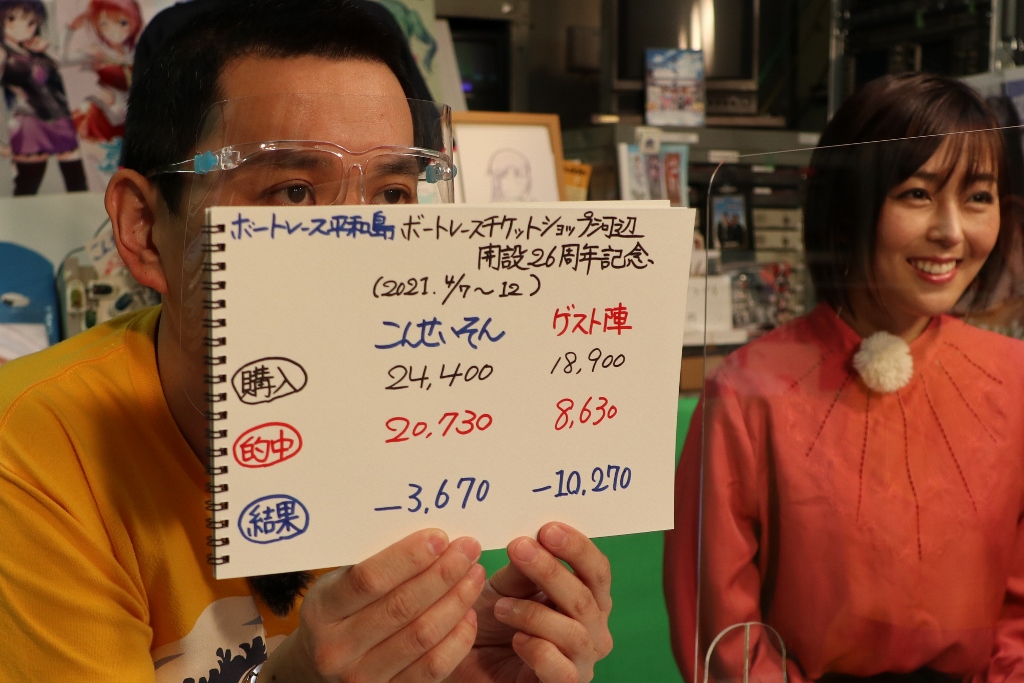 ボートレース平和島 ボートレースチケットショップ河辺
開設26周年記念、
(2021. 4/7〜12)
こんせいそん ゲスト陣
購入 24,400 18,900
的中 20,730 8,630
結果 -3,670 -10,270